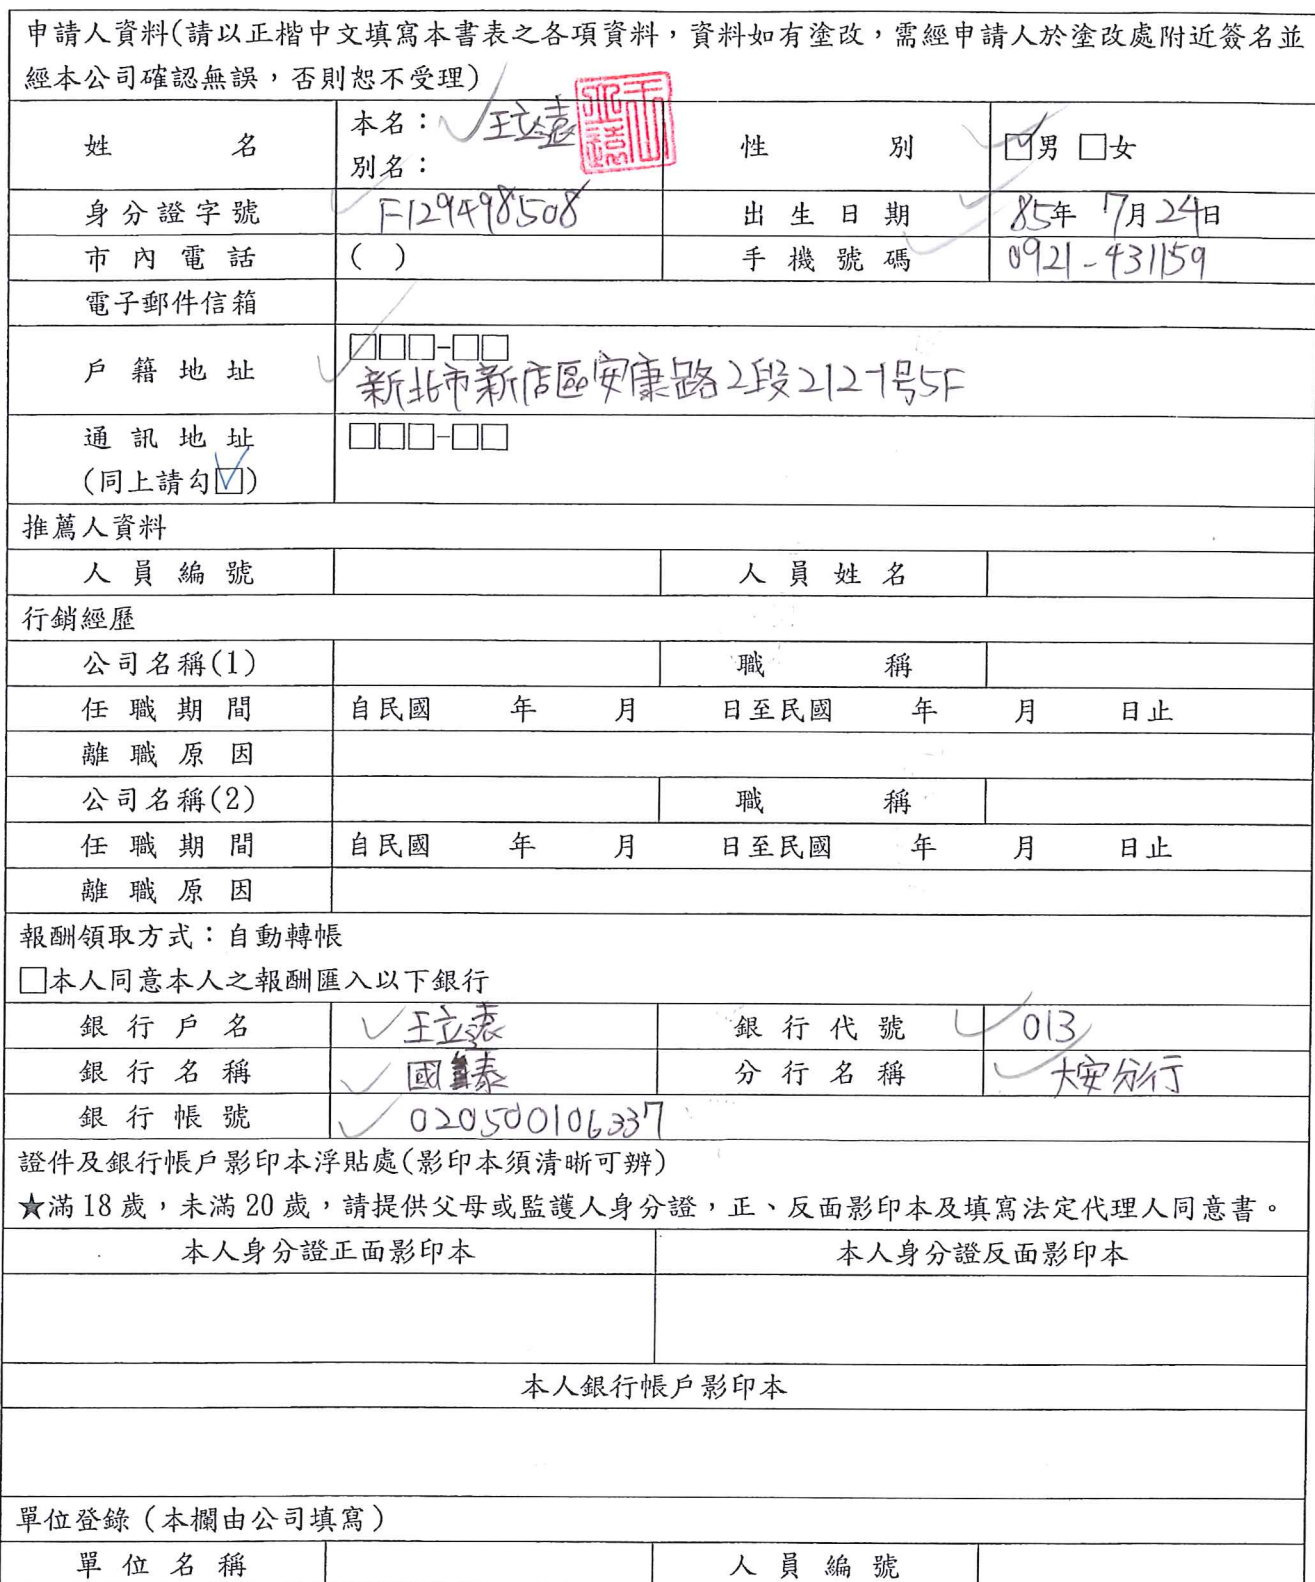 申請人資料(請以正楷中文填寫本書表之各項資料，資料如有塗改，需經申請人於塗改處附近簽名並
經本公司確認無誤，否則恕不受理)
姓 名 本名： 王立遠 性 別 ☑男 □女
別名：
身分證字號 F129498508 出生日期 85年 7月24日
市內電話 ( ) 手機號碼 0921-431159
電子郵件信箱
戶籍地址 □□□-□□
新北市新店區安康路2段212-1号5F
通訊地址 □□□-□□
(同上請勾☑)
推薦人資料
人員編號 人員姓名
行銷經歷
公司名稱(1) 職 稱
任職期間 自民國 年 月 日至民國 年 月 日止
離職原因
公司名稱(2) 職 稱
任職期間 自民國 年 月 日至民國 年 月 日止
離職原因
報酬領取方式：自動轉帳
□本人同意本人之報酬匯入以下銀行
銀行戶名 王立遠 銀行代號 013
銀行名稱 國泰 分行名稱 大安分行
銀行帳號 020500106337
證件及銀行帳戶影印本浮貼處(影印本須清晰可辨)
★滿18歲，未滿20歲，請提供父母或監護人身分證，正、反面影印本及填寫法定代理人同意書。
本人身分證正面影印本 本人身分證反面影印本
本人銀行帳戶影印本
單位登錄（本欄由公司填寫）
單位名稱 人員編號